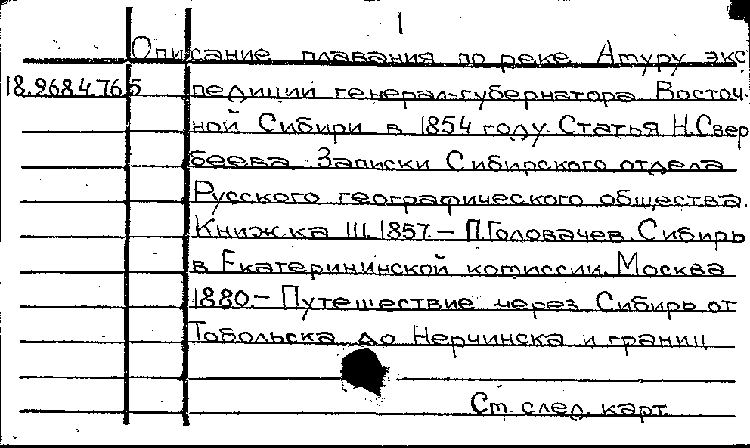 1
Описание плавания по реке Амуру экс
18.9684.765 педиции генерал-губернатора Восточ-
ной Сибири в 1854 году. Статья Н.Свер
беева. Записки Сибирского отдела
Русского географического общества.
Книжка III. 1857.– П.Головачев. Сибирь
в Екатерининской комиссии. Москва
1880.– Путешествие через Сибирь от
Тобольска до Нерчинска и границ
См. след. карт.